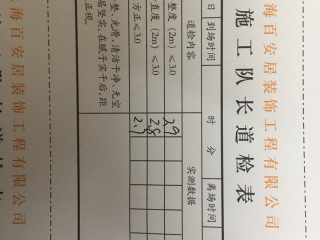 海百安居装饰工程有限公司
施工队长道检表
日 到场时间 时 分 离场时间
道检内容 实测数据
整度（2m）≤3.0 2.9
直度（2m）≤3.0 2.8
方正≤3.0
整、光滑、清洁干净、无空
层坚实，在腻子实干后，距
正视。
海百安居装饰工程有限公司